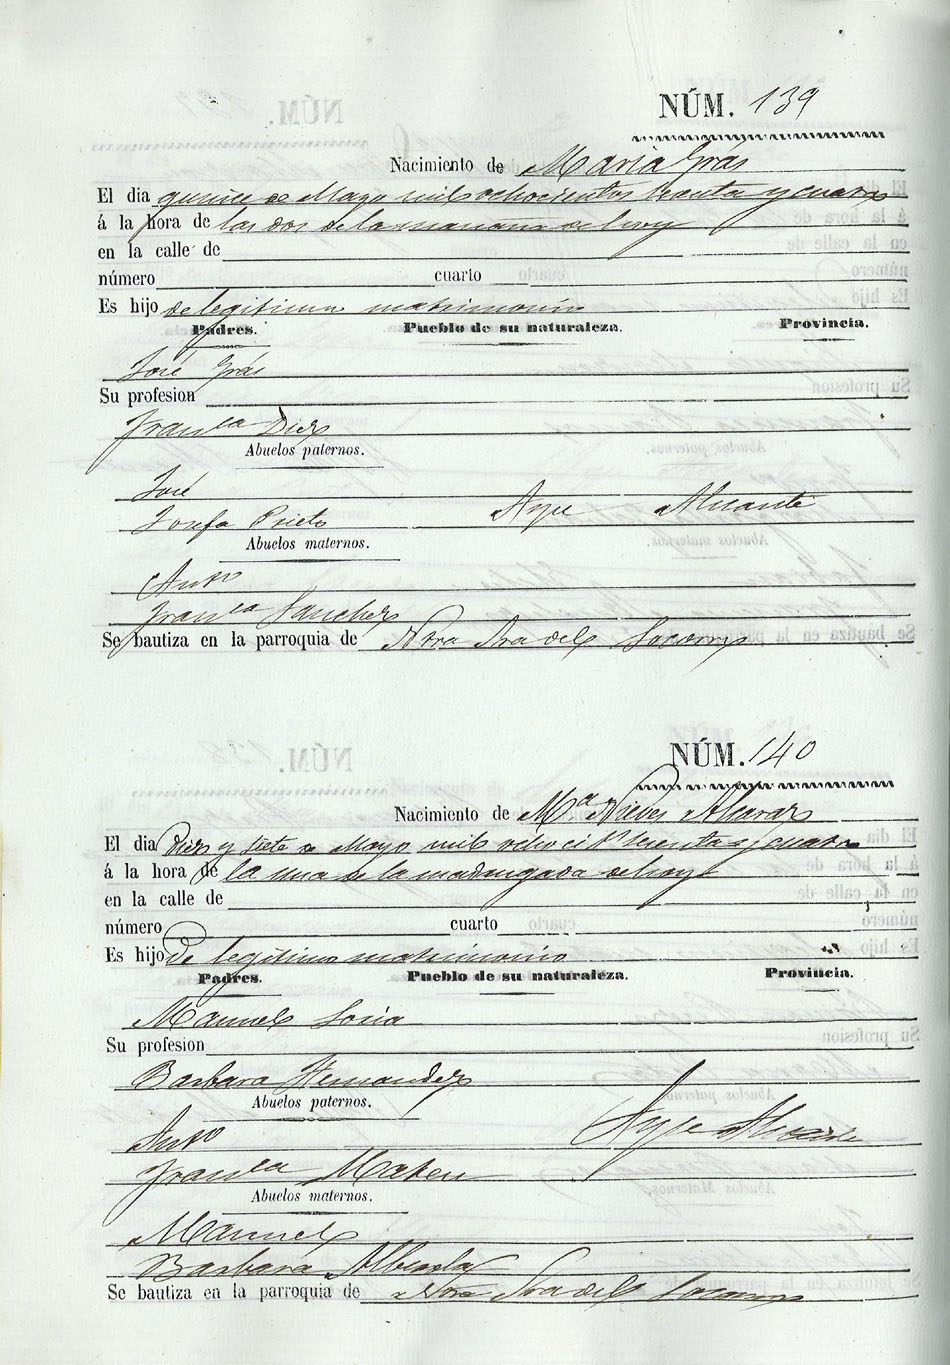 NÚM. 139
Nacimiento de Maria Grás
El dia quince de Mayo mil ochocientos sesenta y cuatro
á la hora de las dos de la mañana de hoy
en la calle de
número cuarto
Es hijo de legitimo matrimonio
Padres. Pueblo de su naturaleza. Provincia.
José Grás
Su profesion
Franca Diez
Abuelos paternos.
José
Josefa Prieto Aspe Alicante
Abuelos maternos.
Anto
Franca Sanchez
Se bautiza en la parroquia de Ntra Sra del Socorro
NÚM. 140
Nacimiento de Ma Nieves
El dia Diez y siete de Mayo mil ochocits sesenta y cuatro
á la hora de la una de la madrugada de hoy
en la calle de
número cuarto
Es hijo de legitimo matrimonio
Padres. Pueblo de su naturaleza. Provincia.
Manuel Soria
Su profesion
Barbara Hernandez
Abuelos paternos.
Anto Aspe Alicante
Franca Mateu
Abuelos maternos.
Manuel
Barbara
Se bautiza en la parroquia de Ntra Sra del Socorro